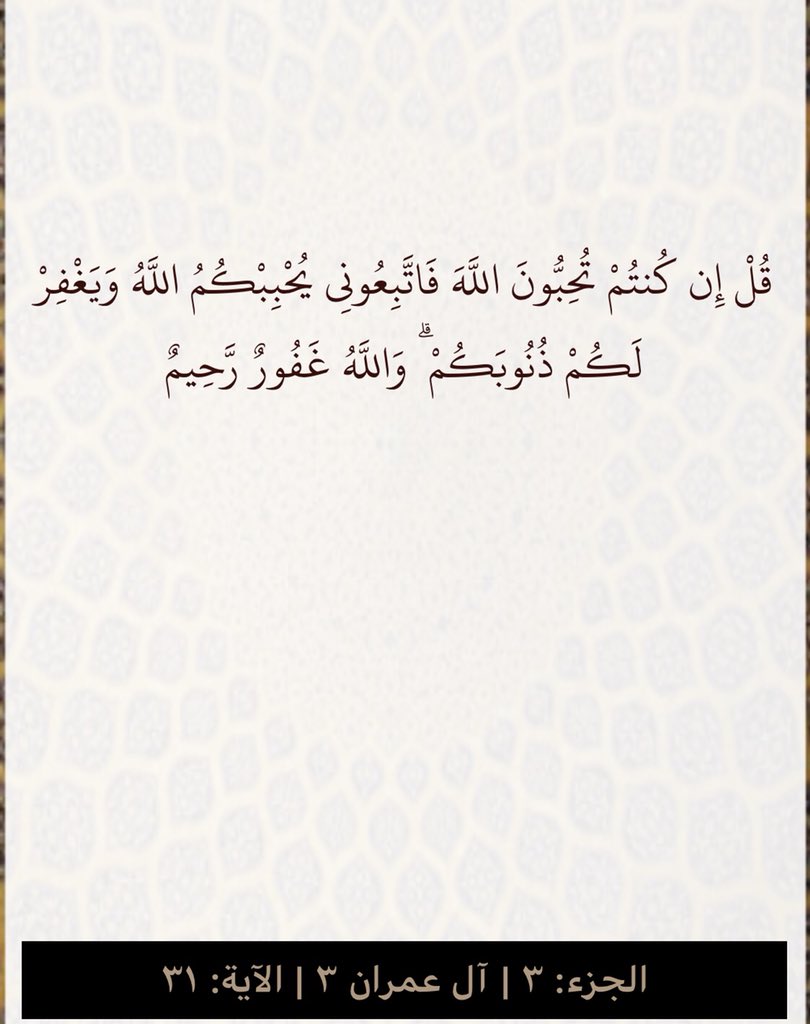 قُلْ إِن كُنتُمْ تُحِبُّونَ اللَّهَ فَاتَّبِعُونِى يُحْبِبْكُمُ اللَّهُ وَيَغْفِرْ
لَكُمْ ذُنُوبَكُمْ ۗ وَاللَّهُ غَفُورٌ رَّحِيمٌ
الجزء: ٣ | آل عمران ٣ | الآية: ٣١